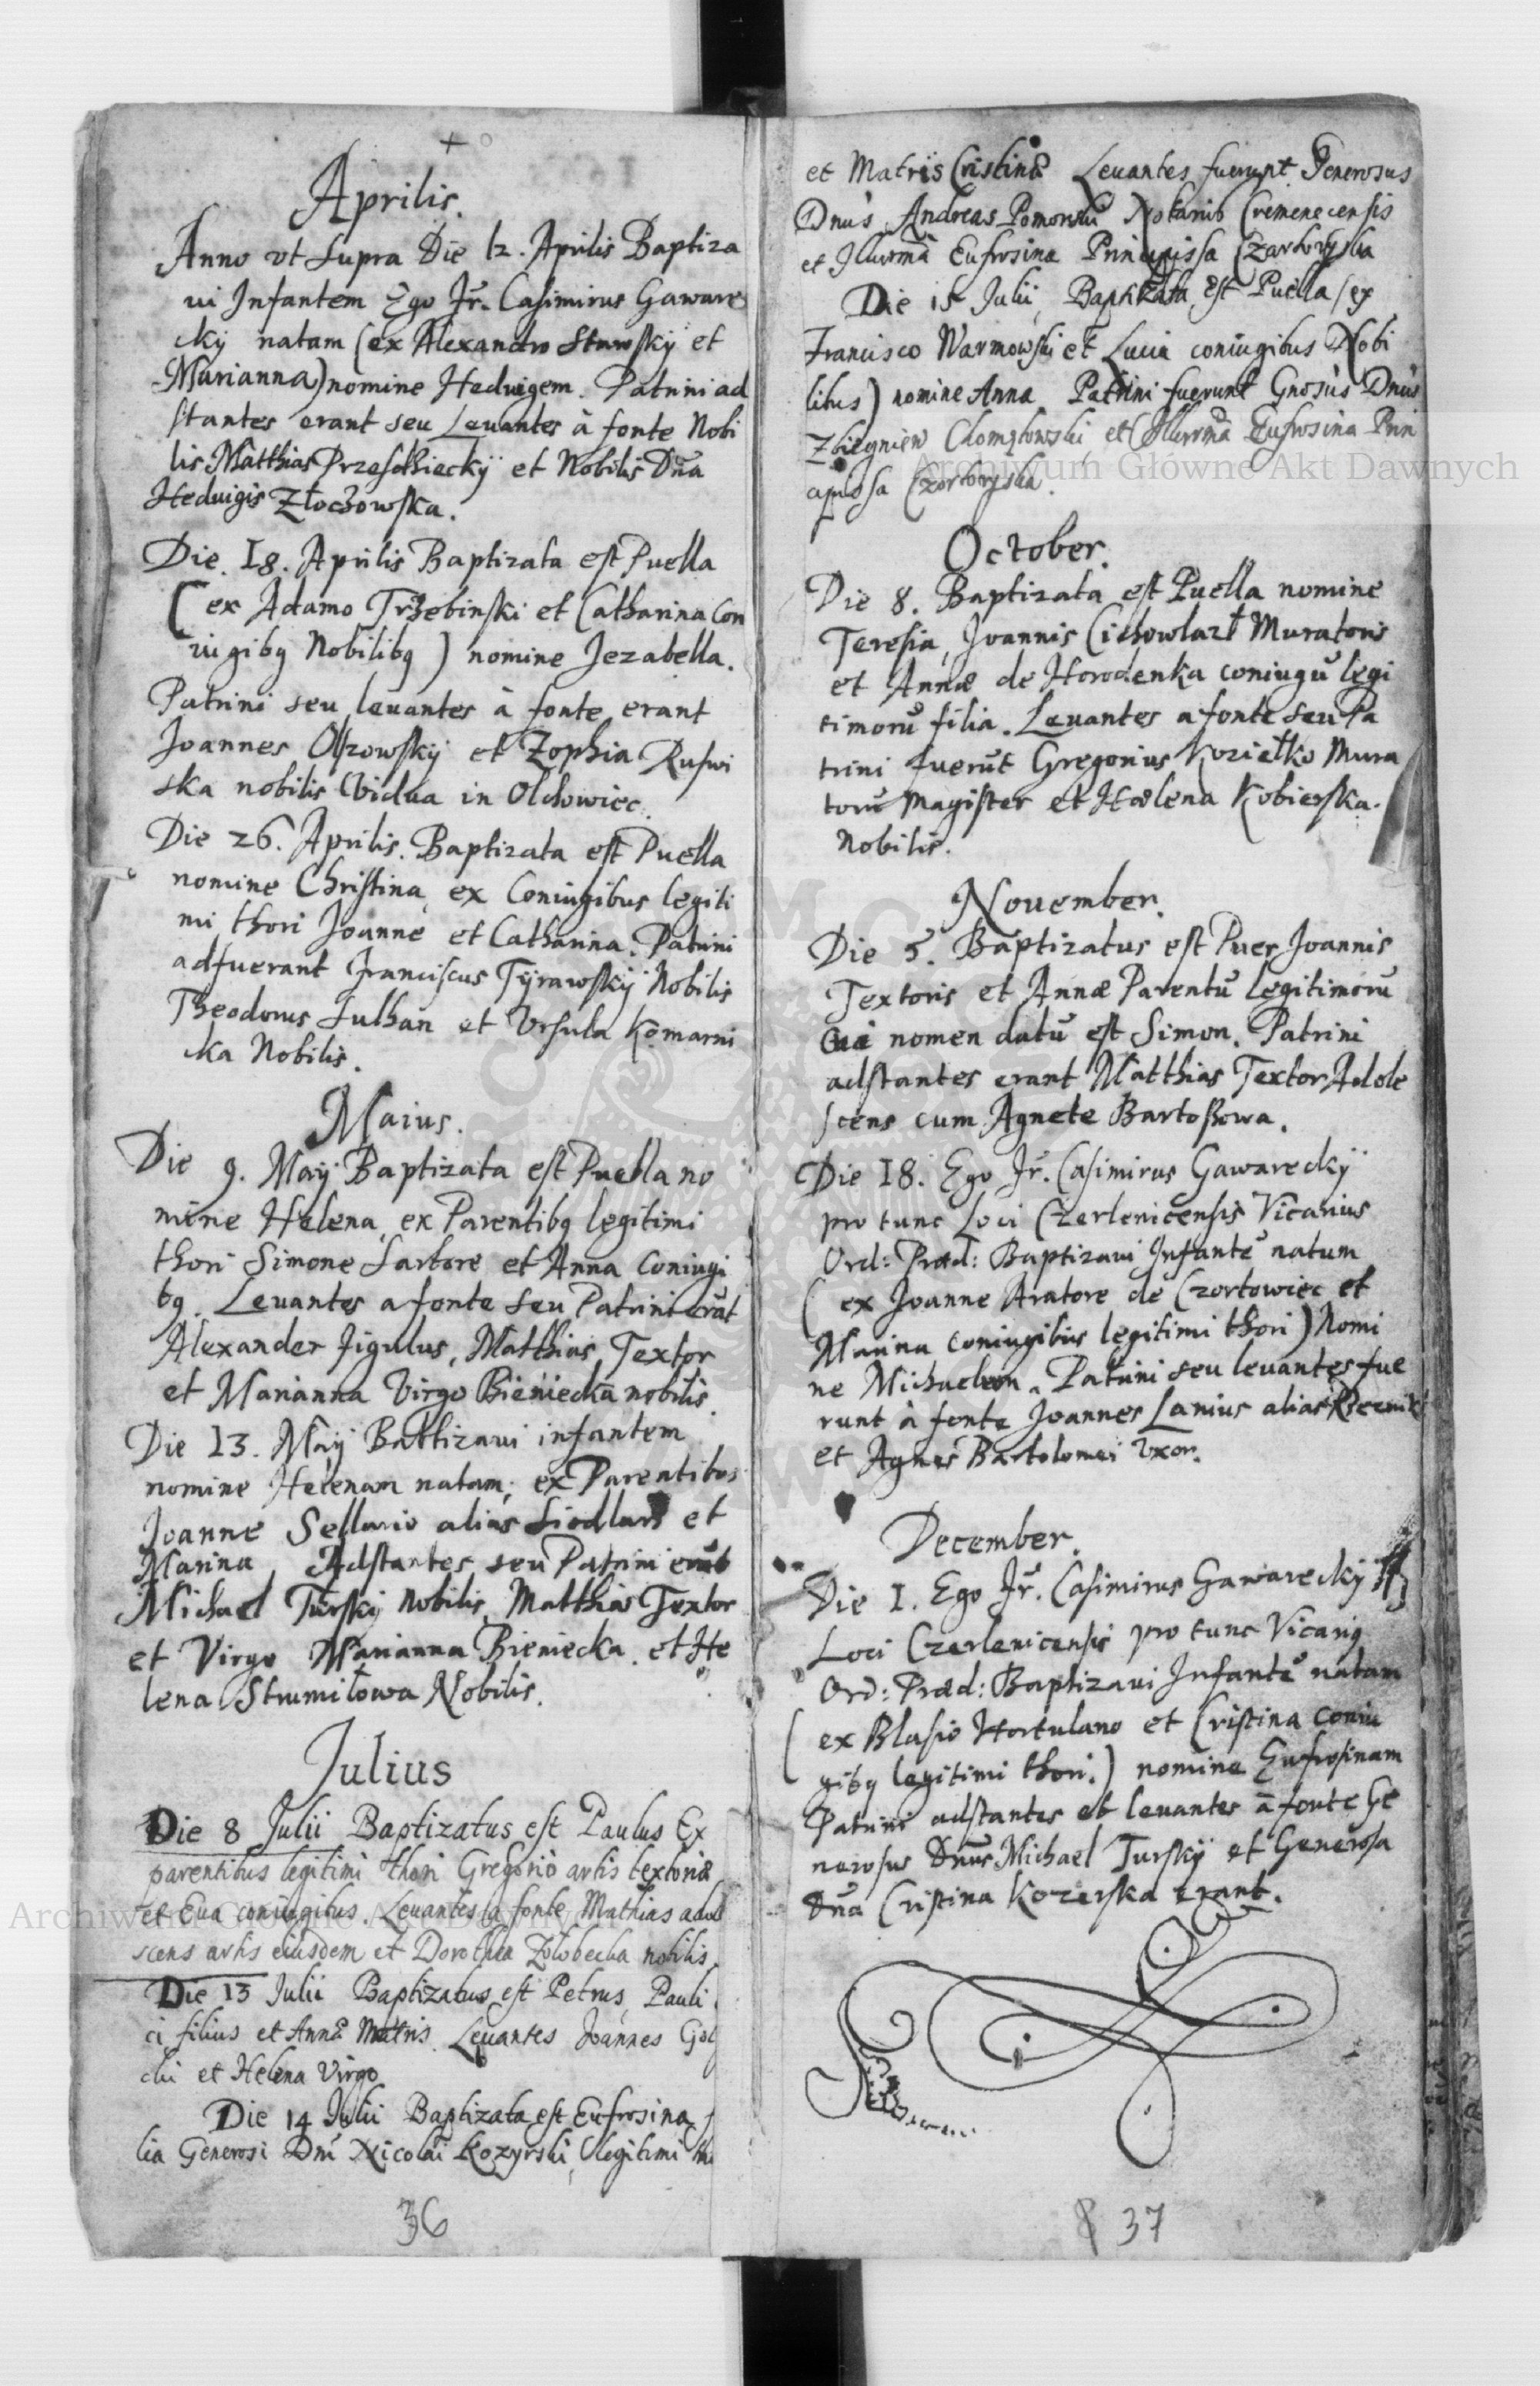 Aprilis.
Anno vt supra Die 12. Aprilis Baptiza
ui Infantem Ego Fr. Casimirus Gaware
cky natam (ex Alexandro Stawsky et
Marianna) nomine Heduigem. Patrini ad
stantes erant seu Leuantes à fonte Nobi
lis Matthias et Nobilis Dña
Heduigis Złoczowska.
Die. 18. Aprilis Baptizata est Puella
(ex Adamo Trzebinski et Catharina Con
iugibq Nobilibq) nomine Jezabella.
Patrini seu leuantes à fonte erant
Joannes Olszowskÿ et Zophia Ruswi
ska nobilis Vidua in Olchowiec.
Die 26. Aprilis. Baptizata est Puella
nomine Christina, ex Coniugibus legiti
mi thori Joanne et Catharina. Patrini
adfuerant Franciscus Tÿrawskÿ Nobilis
Theodorus Sulhan et Vrsula Komarni
cka Nobilis.
Maius.
Die 9. Maÿ Baptizata est Puella no
mine Helena, ex Parentibq legitimi
thori Simone Sartore et Anna Coniugi
bq. Leuantes a fonte seu Patrini erāt
Alexander Figulus, Matthias Textor
et Marianna Virgo Bieniecka nobilis.
Die 13. Maÿ Battizaui infantem
nomine Helenam natam, ex Parentibus
Joanne Sellario alias Siodlarz et
Marina Adstantes seu Patrini erāt
Michael Turskÿ Nobilis, Matthias Textor
et Virgo Marianna Bieniecka. et He
lena Strumiłowa Nobilis.
Julius
Die 8 Julii Baptizatus est Paulus Ex
parentibus legitimi thori Gregorio artis textoriæ
et Eua coniugibus. Leuantes a fonte Mathias adol
scens artis eiusdem et Dorothea Zolobecka nobilis
Die 13 Julii Baptizatus est Petrus, Pauli
ci filius et Annæ Matris. Leuantes Joannes Gol
chi et Helena Virgo
Die 14 Julii Baptizata est Eufrosina
lia Generosi Dni Nicolai Kozyrski, legitimi
36
et Matris Cristinæ Leuantes fuerunt Generosus
Dnus Andreas Pomorski Notarius Cremenecensis
et Illurma Eufrosina Principissa Czartoryska
Die 15 Julii, Baptizata est Puella (ex
Francisco Warmowski et Lucia coniugibus Nobi
libus) nomine Anna Patrini fuerunt Gnosus Dnus
Zbiegniew et Illurma Eufrosina Prin
cipissa Czartoryska.
October.
Die 8. Baptizata est Puella nomine
Teresia, Joannis Muratoris
et Annæ de Horodenka coniugū legi
timorū filia. Leuantes a fonte seu Pa
trini fuerūt Gregorius Koziełko Mura
torū Magister et Hælena Kobierska.
Nobilis.
November.
Die 5. Baptizatus est Puer Joannis
Textoris et Annæ Parentū legitimorū
Cui nomen datū est Simon. Patrini
adstantes erant Matthias Textor Adole
scens cum Agnete Bartoszowa.
Die 18. Ego Fr. Casimirus Gawareckÿ
pro tunc Loci Czerlenicensis Vicarius
Ord: Præd: Baptizaui Infantē natum
(ex Joanne Aratore de Czortowiec et
Marina coniugibus legitimi thori) Nomi
ne Michaelem. Patrini seu leuantes fue
runt à fonte Joannes Lanius alias Rzeznik
et Agnes Bartolomei Vxor.
December.
Die 1. Ego Fr. Casimirus Gawareckÿ
Loci Czerlenicensis pro tunc Vicariq
Ord: Præd: Baptizaui Infantē natam
(ex Blasio Hortulano et Cristina coniu
gibq legitimi thori.) nomine Eufrosinam
Patrini adstantes et leuantes à fonte Ge
nerosus Dnus Michael Turskÿ et Generosa
Dña Cristina Kozerska erant.
37
Archiwum Główne Akt Dawnych
Archiwum Główne Akt Dawnych